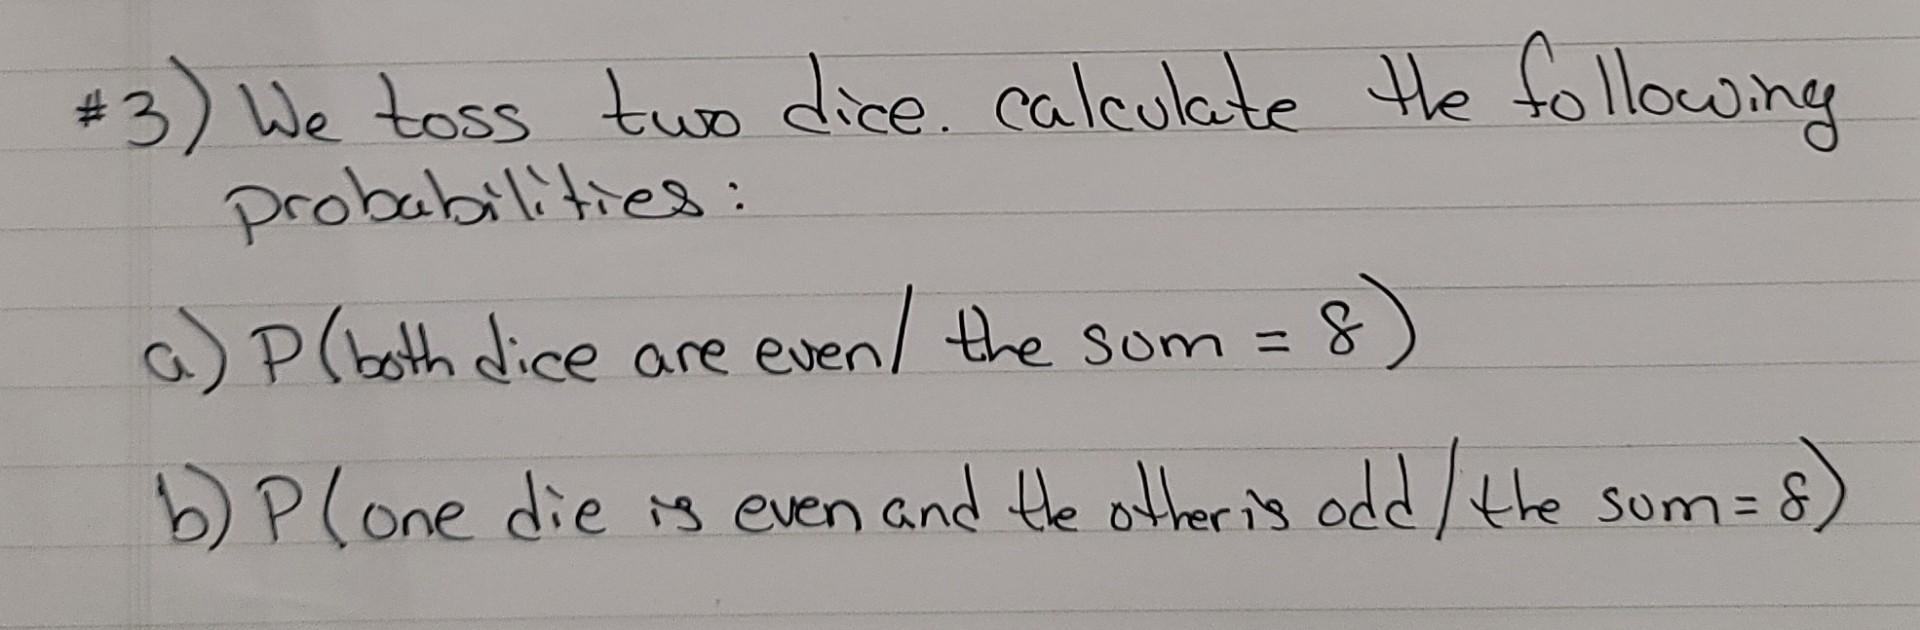 #3) We toss two dice. calculate the following
probabilities:
a) P(both dice are even/ the sum = 8)
b) P(one die is even and the other is odd / the sum = 8)